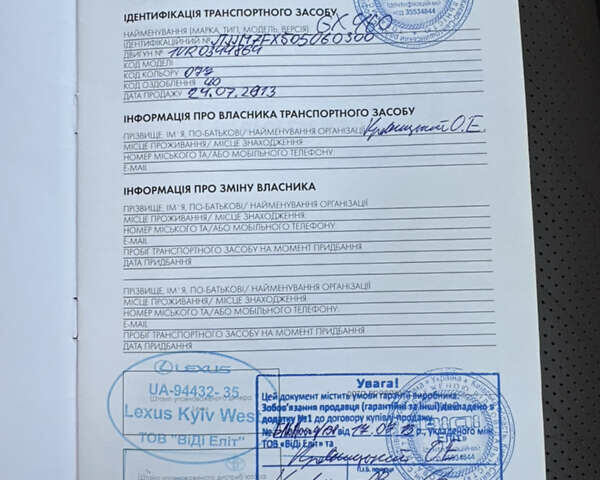 ІДЕНТИФІКАЦІЯ ТРАНСПОРТНОГО ЗАСОБУ
НАЙМЕНУВАННЯ (МАРКА, ТИП, МОДЕЛЬ, ВЕРСІЯ) GX 460
ІДЕНТИФІКАЦІЙНИЙ №
ДВИГУН №
КОД МОДЕЛІ
КОД КОЛЬОРУ 077
КОД ОЗДОБЛЕННЯ 40
ДАТА ПРОДАЖУ 24.07.2013
35534844
ІНФОРМАЦІЯ ПРО ВЛАСНИКА ТРАНСПОРТНОГО ЗАСОБУ
ПРІЗВИЩЕ, ІМ'Я, ПО-БАТЬКОВІ/ НАЙМЕНУВАННЯ ОРГАНІЗАЦІЇ О.Е.
МІСЦЕ ПРОЖИВАННЯ/ МІСЦЕ ЗНАХОДЖЕННЯ
НОМЕР МІСЬКОГО ТА/АБО МОБІЛЬНОГО ТЕЛЕФОНУ
E-MAIL
ІНФОРМАЦІЯ ПРО ЗМІНУ ВЛАСНИКА
ПРІЗВИЩЕ, ІМ'Я, ПО-БАТЬКОВІ/ НАЙМЕНУВАННЯ ОРГАНІЗАЦІЇ
МІСЦЕ ПРОЖИВАННЯ/ МІСЦЕ ЗНАХОДЖЕННЯ
НОМЕР МІСЬКОГО ТА/АБО МОБІЛЬНОГО ТЕЛЕФОНУ
E-MAIL
ПРОБІГ ТРАНСПОРТНОГО ЗАСОБУ НА МОМЕНТ ПРИДБАННЯ
ДАТА ПРИДБАННЯ
ПРІЗВИЩЕ, ІМ'Я, ПО-БАТЬКОВІ/ НАЙМЕНУВАННЯ ОРГАНІЗАЦІЇ
МІСЦЕ ПРОЖИВАННЯ/ МІСЦЕ ЗНАХОДЖЕННЯ
НОМЕР МІСЬКОГО ТА/АБО МОБІЛЬНОГО ТЕЛЕФОНУ
E-MAIL
ПРОБІГ ТРАНСПОРТНОГО ЗАСОБУ НА МОМЕНТ ПРИДБАННЯ
ДАТА ПРИДБАННЯ
LEXUS
UA-94432-35
Lexus Kyïv West
ТОВ "ВіДі Еліт"
Увага!
Цей документ містить умови гарантії виробника.
Зобов'язання продавця (гарантійні та інші) викладено в
додатку №1 до договору купівлі-продажу
№ від укладеного між
ТОВ «ВіДі Еліт» та